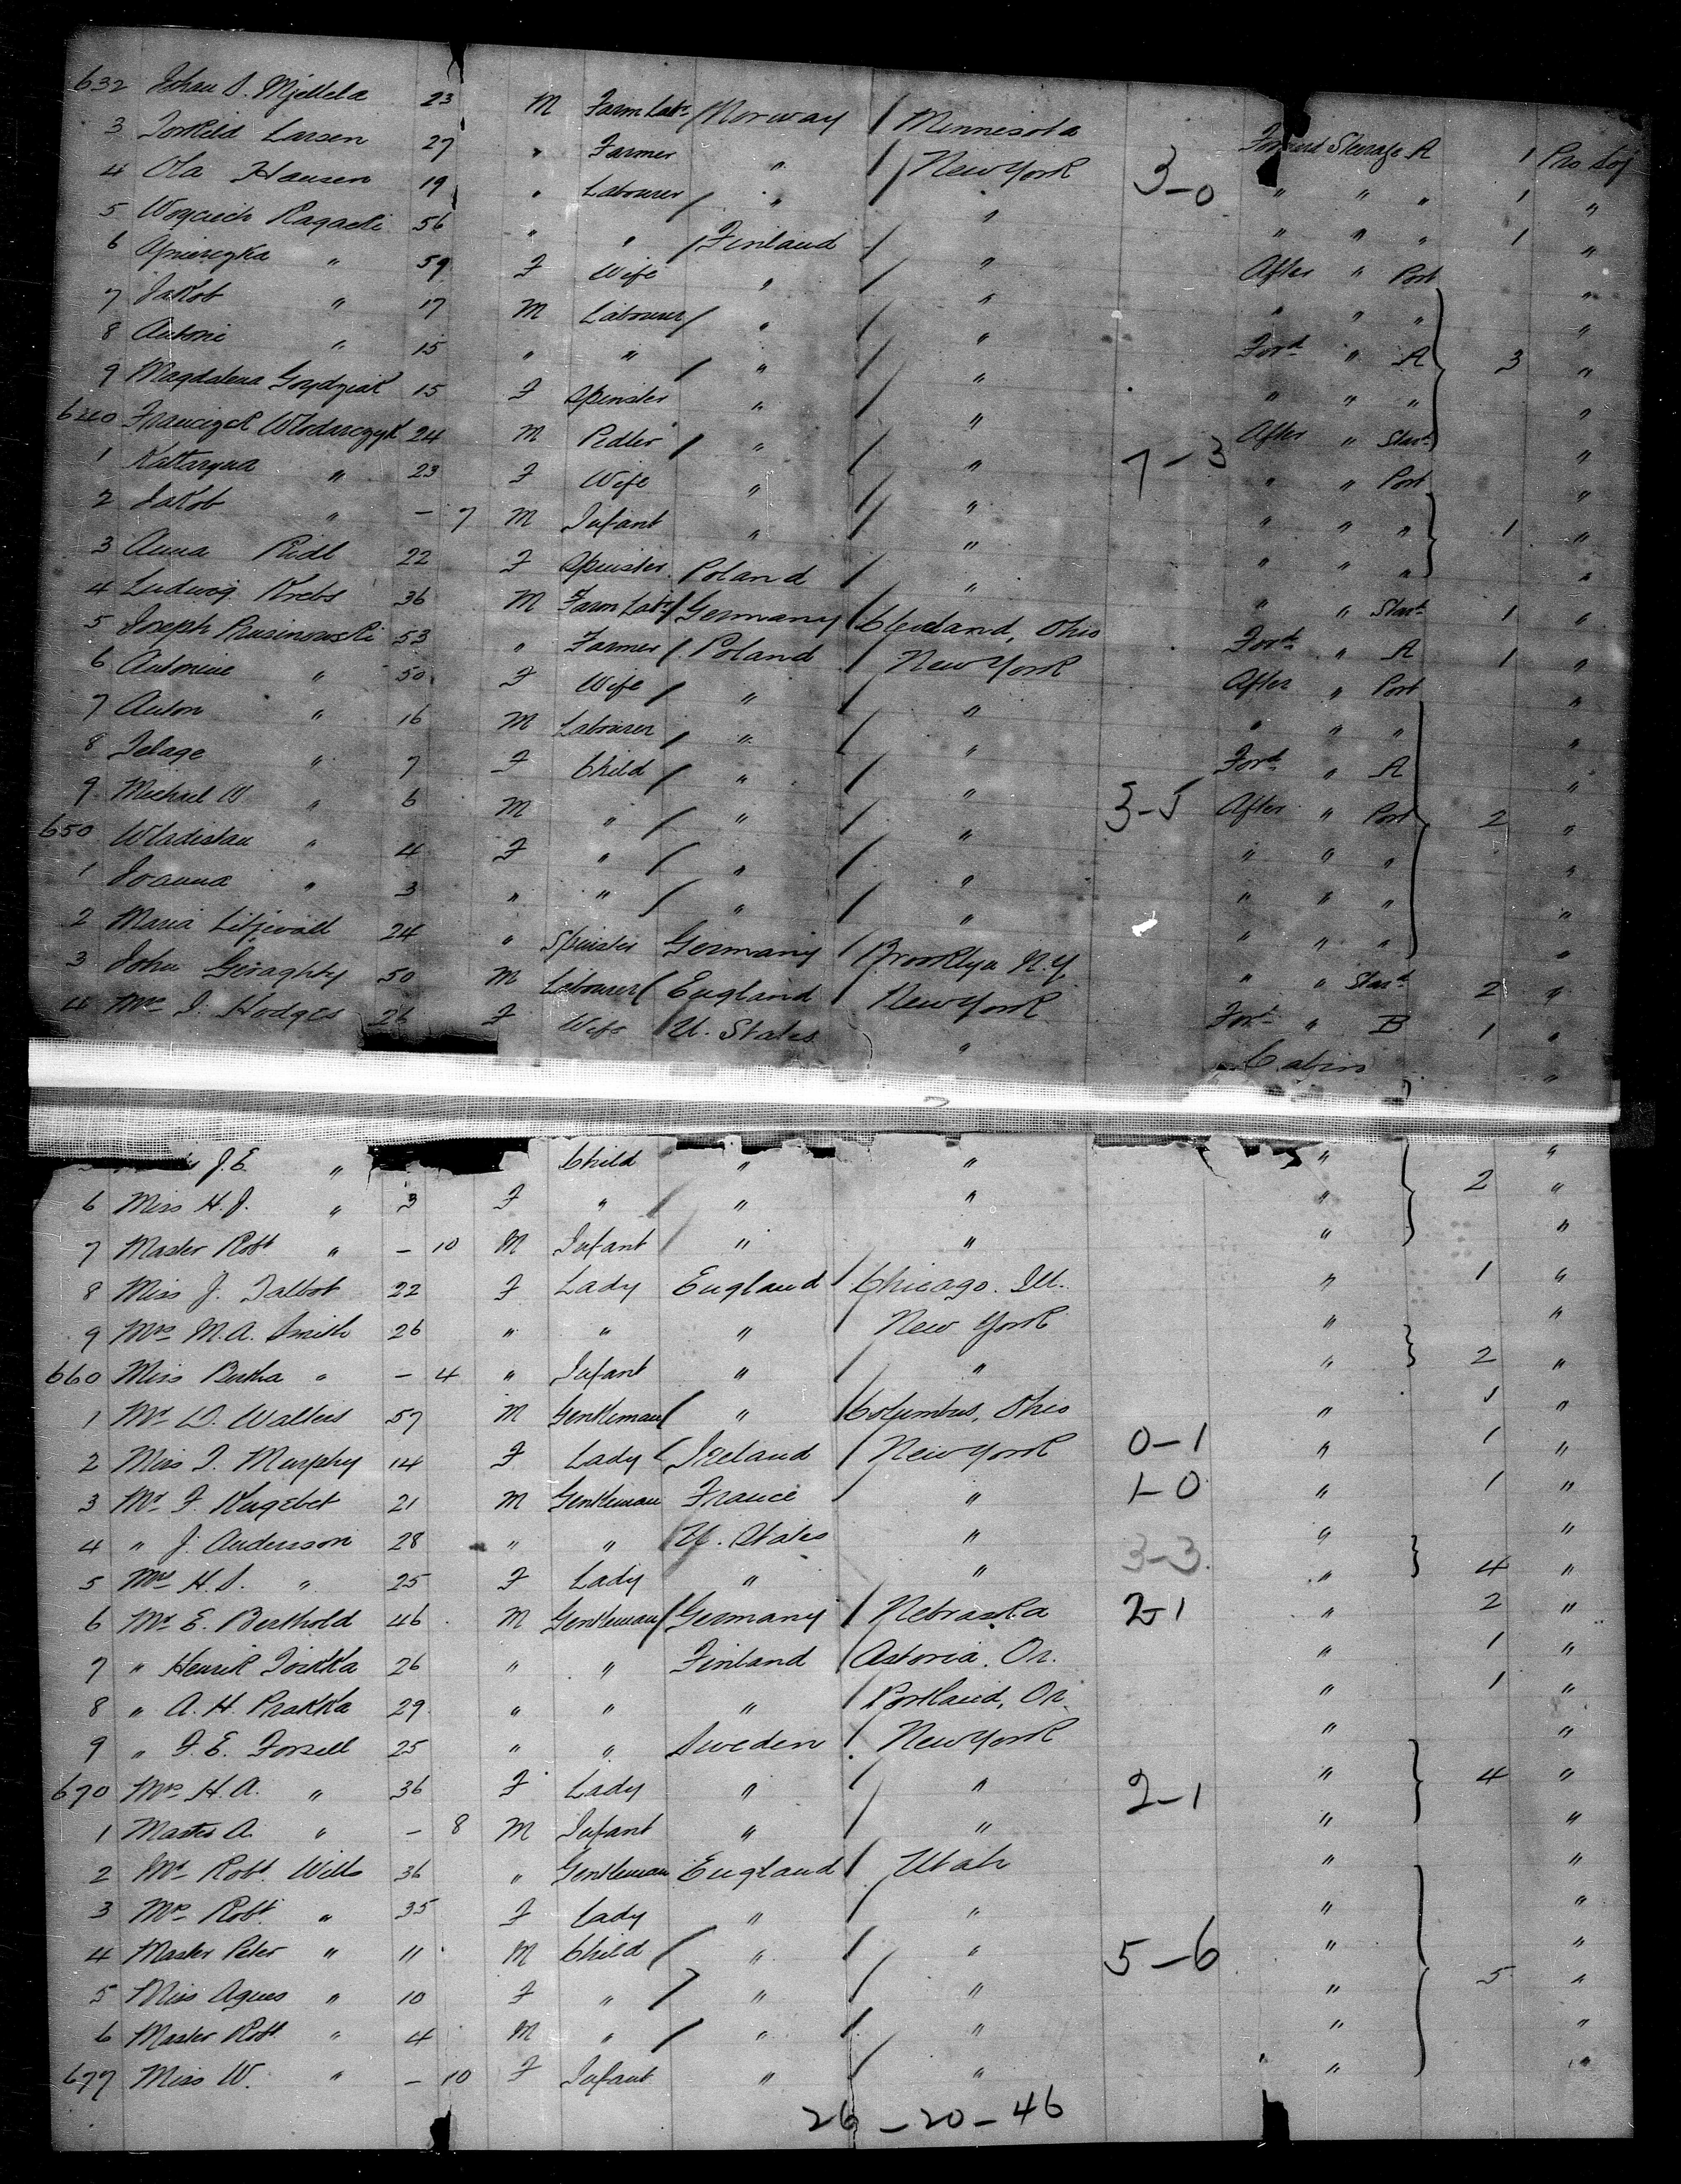 632 Johan S. Mjellela 23 M Farm Labr Norway Minnesota Forward Steerage A 1 Pro Soj
3 Torkild Larsen 27 " Farmer " New York 3-0 " " " 1 "
4 Ola Hansen 19 " Labourer " " " " " 1 "
5 Wojciech Ragacki 56 " " Finland " After " Port "
6 " 59 F Wife " " " " " "
7 Jakob " 17 M Labourer " " Ford " A 3 "
8 Antoni " 15 " " " " " " " "
9 Magdalena 15 F Spinster " " After " Start "
640 Franciszek Wlodarczyk 24 M Pedler " " 7-3 " " Port "
1 Kattarzyna " 23 F Wife " " " " " 1 "
2 Jakob " - 7 M Infant " " " " " "
3 Anna Riedl 22 F Spinster Poland " " " Start 1 "
4 Ludwig Krebs 36 M Farm Labr Germany Cleveland, Ohio Ford " A 1 "
5 Joseph Rusinowski 53 " Farmer Poland New York After " Port "
6 Antonine " 50 F Wife " " " " " "
7 Anton " 16 M Labourer " " Ford " A "
8 " 7 F Child " " 3-5 After " Port 2 "
9 Michael W " 6 M " " " " " " "
650 Wladislau " 4 F " " " " " " "
1 Joanna " 3 " " " " " " " "
2 Maria 24 " Spinster Germany Brooklyn N.Y. " " Start 2 "
3 John Geraghty 50 M Labourer England New York Ford " B 1 "
4 Mrs J. Hodges 26 F Wife U. States " Cabin "
J.E. " Child " " " "
6 Miss H.J. " 3 F " " " " 2 "
7 Master Robt " - 10 M Infant " " " "
8 Miss J. Talbot 22 F Lady England Chicago. Ill. " 1 "
9 Mrs M.A. Smith 26 " " " New York " "
660 Miss Bertha " - 4 " Infant " " " 2 "
1 Mr D. Walters 57 M Gentleman " Columbus, Ohio " 1 "
2 Miss J. Murphy 14 F Lady Ireland New York 0-1 " 1 "
3 Mr F. Kugebet 21 M Gentleman France " 1-0 " 1 "
4 " J. Andersson 28 " " U. States " " "
5 Mrs H.S. " 25 F Lady " " 3-3 " 4 "
6 Mr E. Berthold 46 M Gentleman Germany Nebraska 2-1 " 2 "
7 " Henrik Toikka 26 " " Finland Astoria. Or. " 1 "
8 " A.H. Prakka 29 " " " Portland, Or. " 1 "
9 " F.E. Forsell 25 " " Sweden New York " "
670 Mrs H.A. " 36 F Lady " " 2-1 " 4 "
1 Master A. " - 8 M Infant " " " "
2 Mr Robt. Wills 36 " Gentleman England Utah " "
3 Mrs Robt. " 35 F Lady " " " "
4 Master Peter " 11 M Child " " 5-6 " "
5 Miss Agnes " 10 F " " " " 5 "
6 Master Robt " 4 M " " " " "
677 Miss W. " - 10 F Infant " " " "
26-20-46